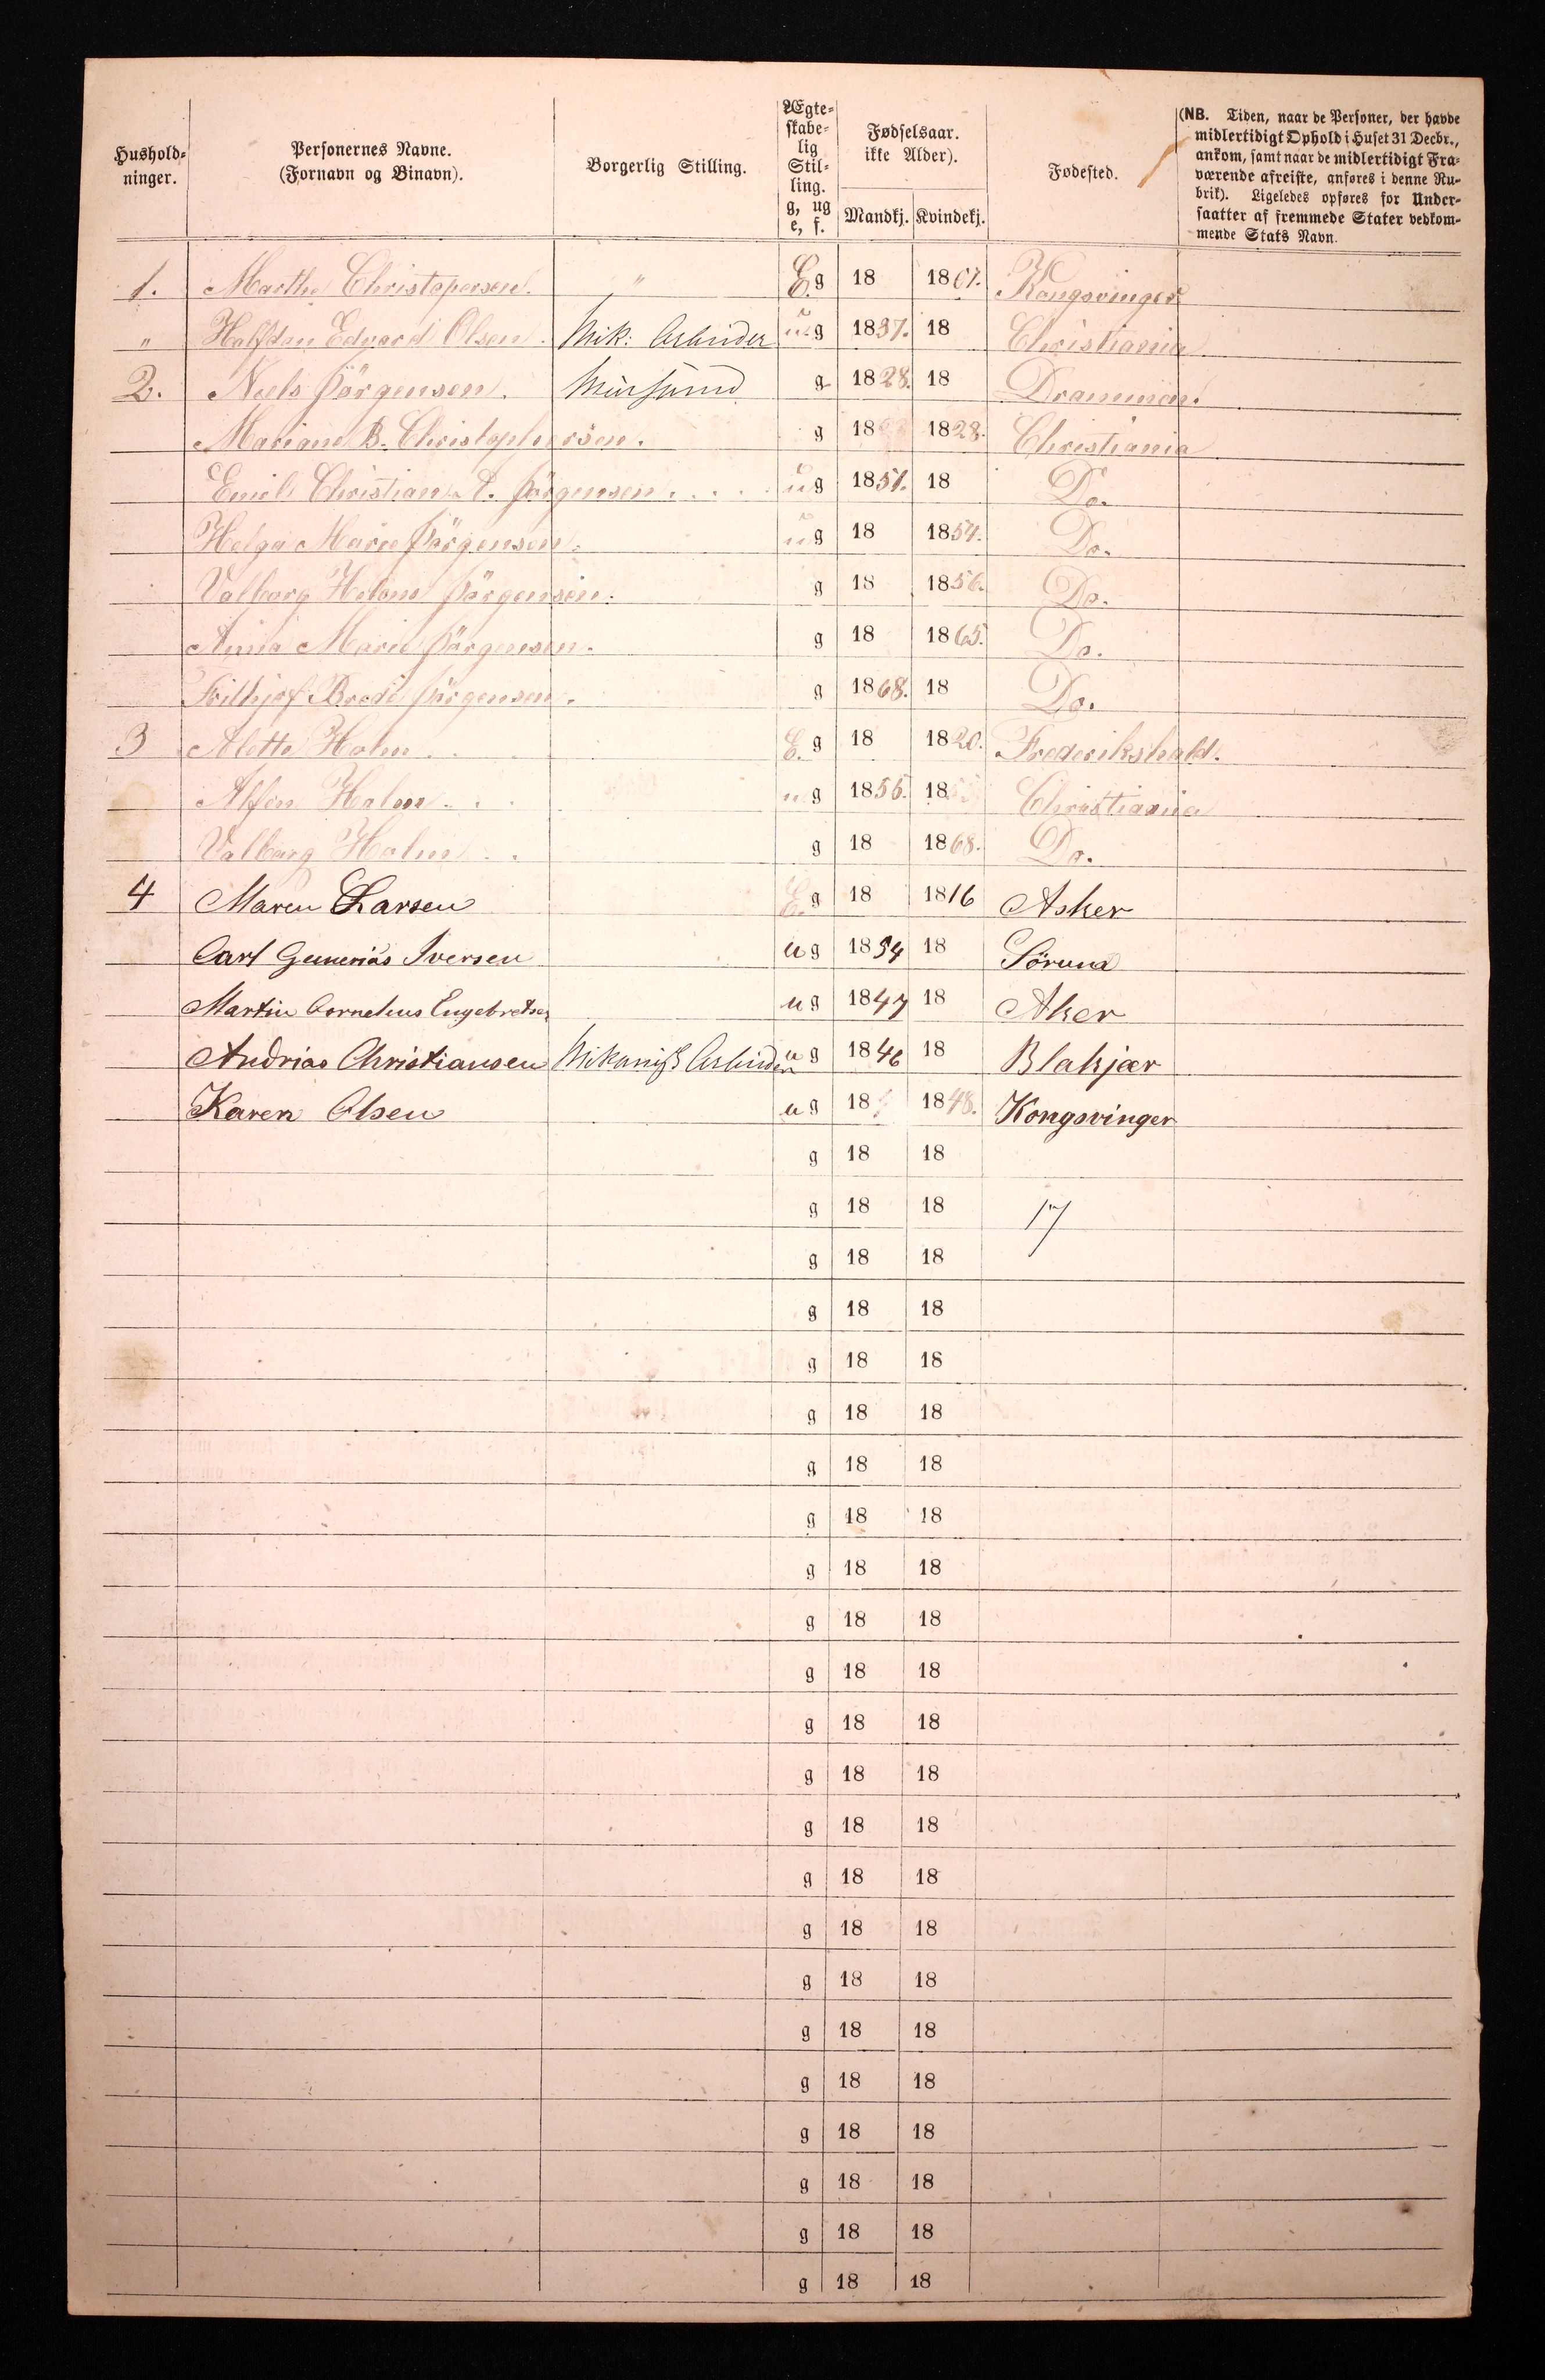 Hushold-
ninger.
Personernes Navne.
(Fornavn og Binavn).
Borgerlig Stilling.
Ægte-
skabe-
lig
Stil-
ling.
g, ug
e, f.
Fødselsaar.
ikke Alder).
Mandkj. Kvindekj.
Fødested.
(NB. Tiden, naar de Personer, der havde
midlertidigt Ophold i Huset 31 Decbr.,
ankom, samt naar de midlertidigt Fra-
værende afreiste, anføres i denne Ru-
brik). Ligeledes opføres for Under-
saatter af fremmede Stater vedkom-
mende Stats Navn.
1. Marthe Christopersen. " E. g 18 1801. Kongsvinger
" Halfdan Edvard Olsen. Mek: Arbeider ug 1837. 18 Christiania
2. Niels Jörgensen. g 1828. 18 Drammen.
Mariane B. Christophersen. g 18 1828. Christiania
Emil Christian Jörgensen. . . . ug 1851. 18 Do.
Helga Marie Jörgensen. ug 18 1854. Do.
Valborg Helene Jörgensen. g 18 1856. Do.
Anna Marie Jörgensen. g 18 1865. Do.
Frithjof Brede Jörgensen. g 1868. 18 Do.
3 Alette Holm . . E. g 18 1820. Frederikshald.
Alfen Holm . . . ug 1856. 18 Christiania
Valborg Holm . . g 18 1868. Do.
4 Maren Larsen E. g 18 1816 Asker
Carl Gunerius Iversen ug 1854 18 Sörum
Martin Cornelius Engebretsen ug 1847 18 Aker
Andrias Christiansen Mekanisk Arbeider ug 1846 18 Blakjær
Karen Olsen ug 18 1848. Kongsvinger
g 18 18
g 18 18 17
g 18 18
g 18 18
g 18 18
g 18 18
g 18 18
g 18 18
g 18 18
g 18 18
g 18 18
g 18 18
g 18 18
g 18 18
g 18 18
g 18 18
g 18 18
g 18 18
g 18 18
g 18 18
g 18 18
g 18 18
g 18 18